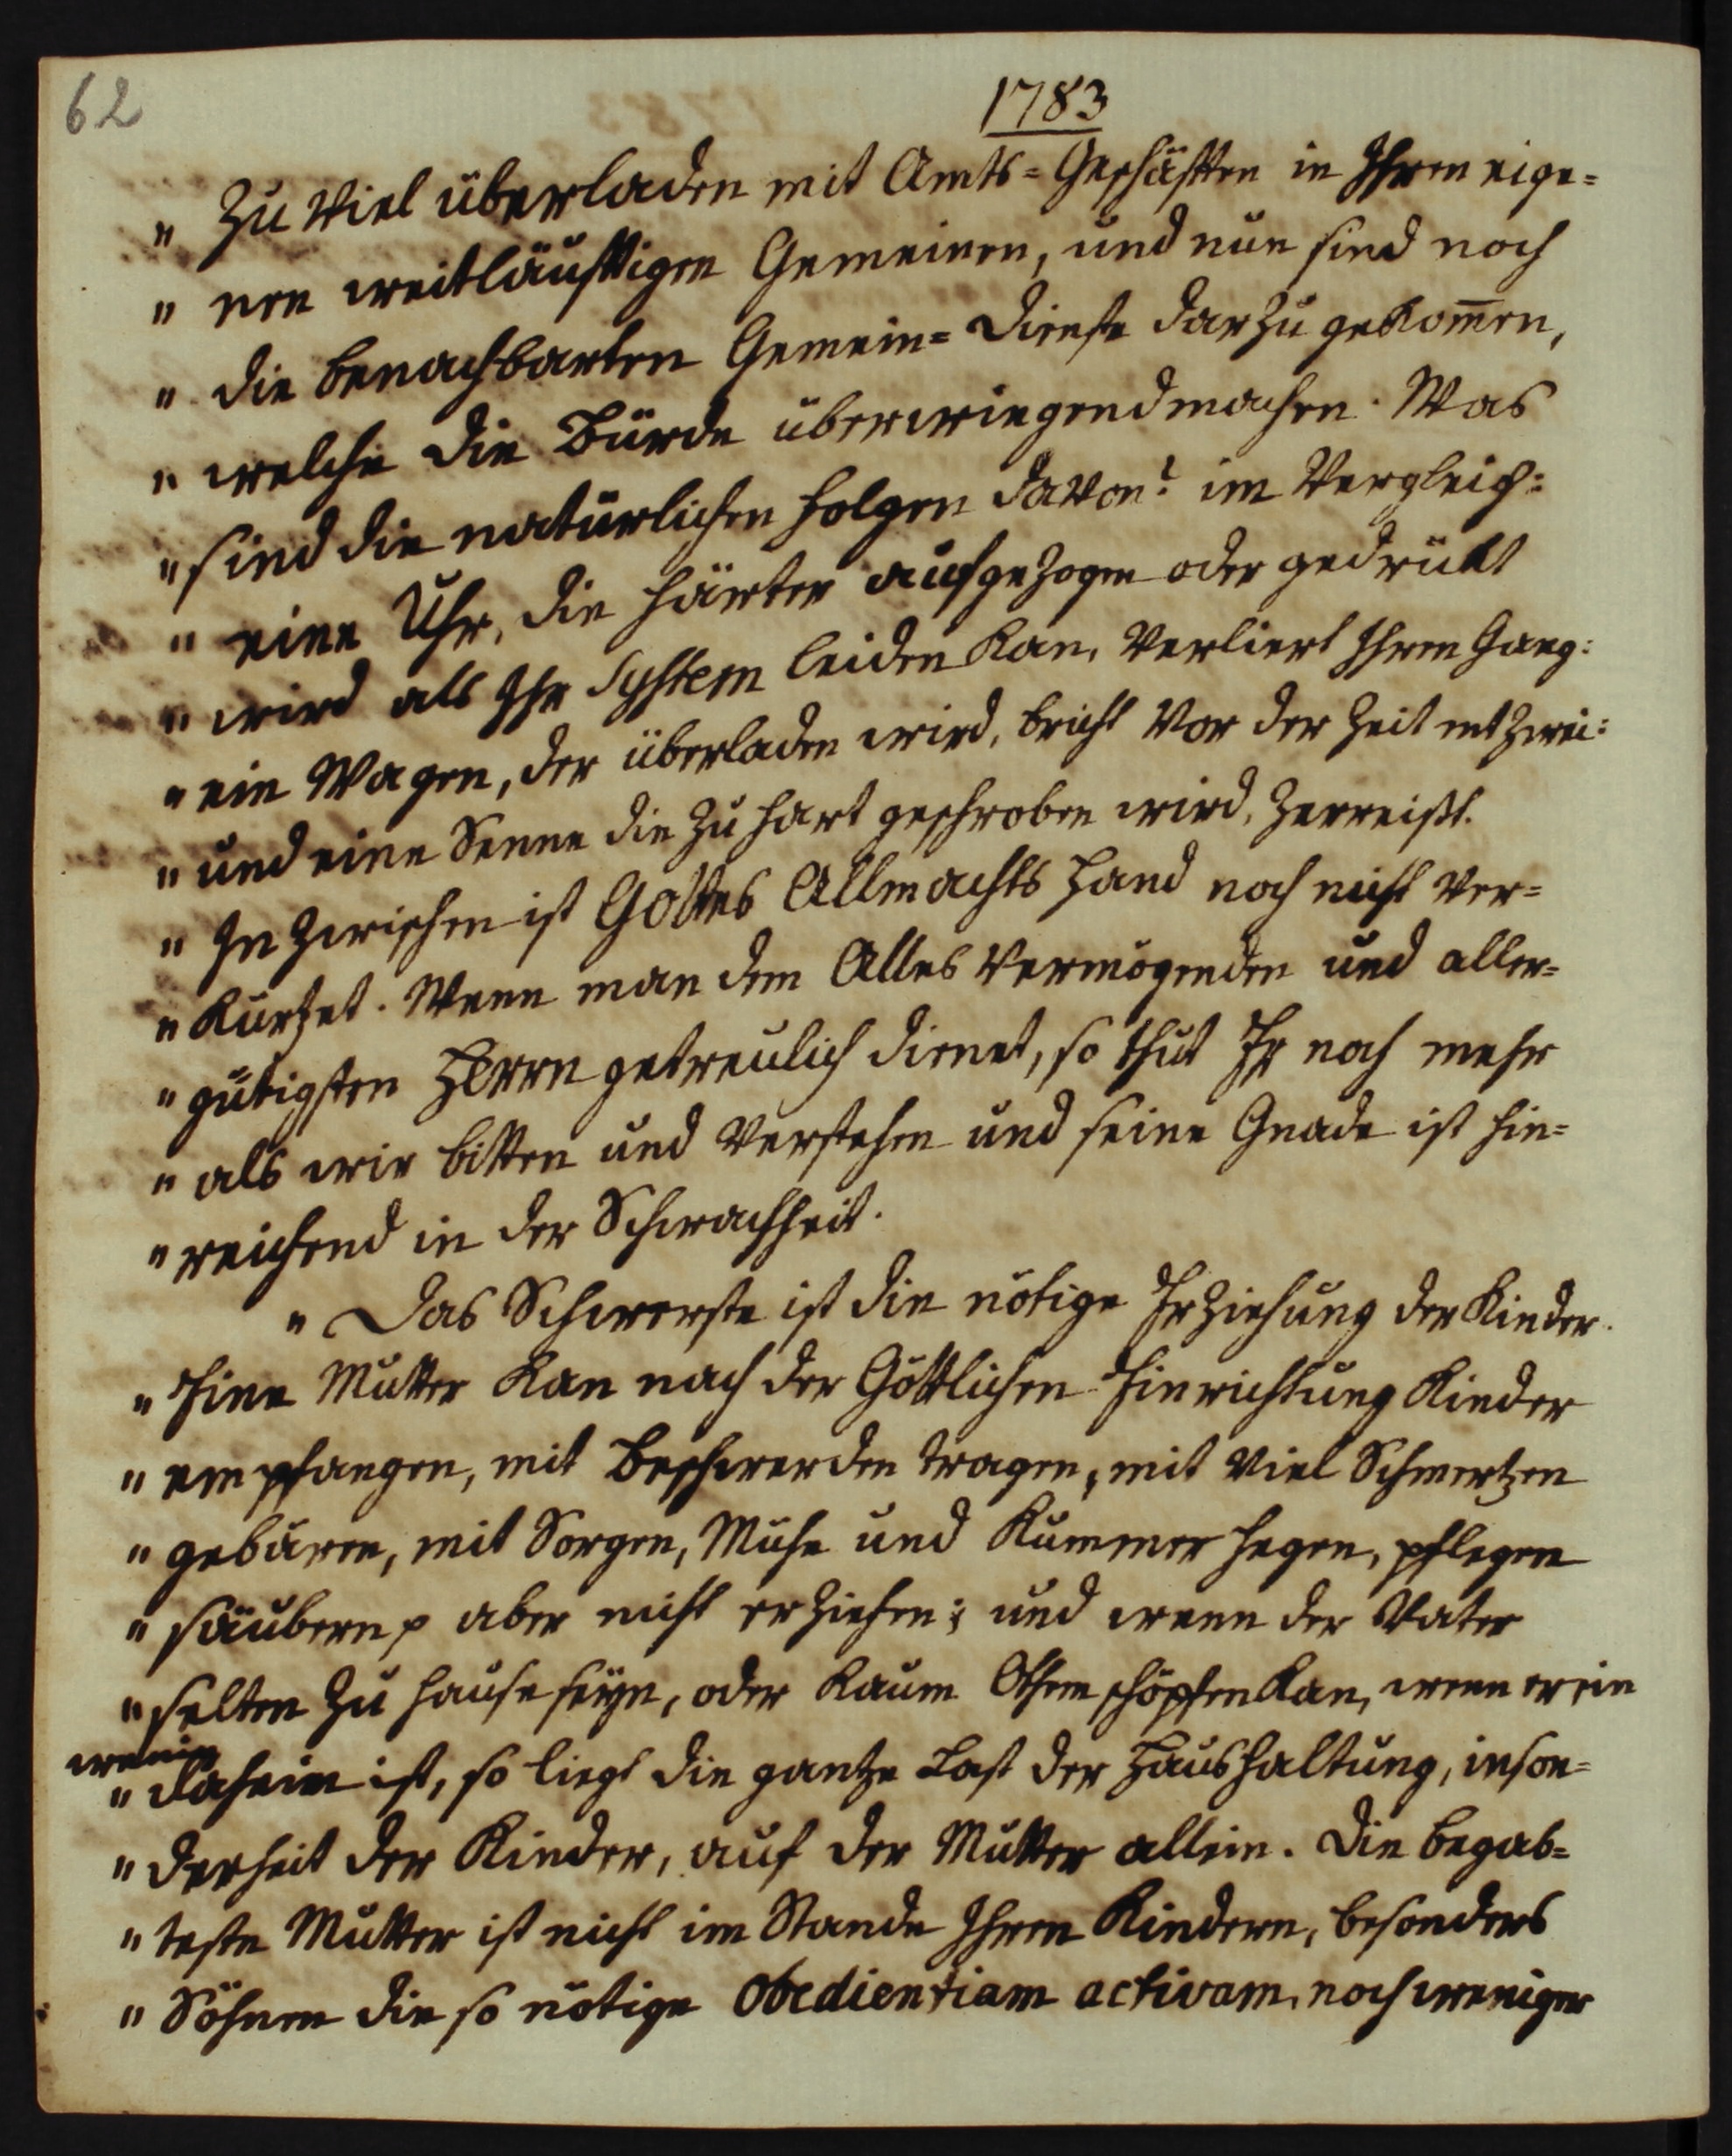 62
1783
" Zu viel überladen mit Amts=Geschäften in Ihren eige=
" nen weitläuftigen Gemeinen, und nun sind noch
" die benachbarten Gemein=Dienste darzu gekom̄en,
" welche die Bürde überwiegend machen. Was
" sind die natürlichen Folgen davon? im Vergleich:
" eine Uhr, die härter aufgezogen oder gedrükt
" wird als Ihr System leiden kan, verliert Ihren Gang:
" ein Wagen, der überladen wird, bricht vor der Zeit entzwei:
" und eine Senne die zu hart geschroben wird, zerreißt.
" Inzwischen ist Gottes Allmachts Hand noch nicht ver=
" kürtzet. Wenn man dem Alles vermögenden und aller=
" gütigsten HErrn getreulich dienet, so thut Er noch mehr
" als wir bitten und verstehen und seine Gnade ist hin=
" reichend in der Schwachheit.
" Das Schwerste ist die nötige Erziehung der Kinder.
" Eine Mutter kan nach der Göttlichen Einrichtung Kinder
" empfangen, mit Beschwerden tragen, mit viel Schmertzen
" gebären, mit Sorgen, Mühe und Kummer hegen, pflegen
" säubern p aber nicht erziehen; und wenn der Vater
" selten zu Hause seÿn, oder kaum Othem schöpfen kan, wenn er ein
wenig
" daheim ist, so liegt die gantze Last der Haushaltung, inson=
" derheit der Kinder, auf der Mutter allein. Die begab=
" teste Mutter ist nicht im Stande Ihren Kindern, besonders
" Söhnen die so nötige obedientiam activam, noch weniger